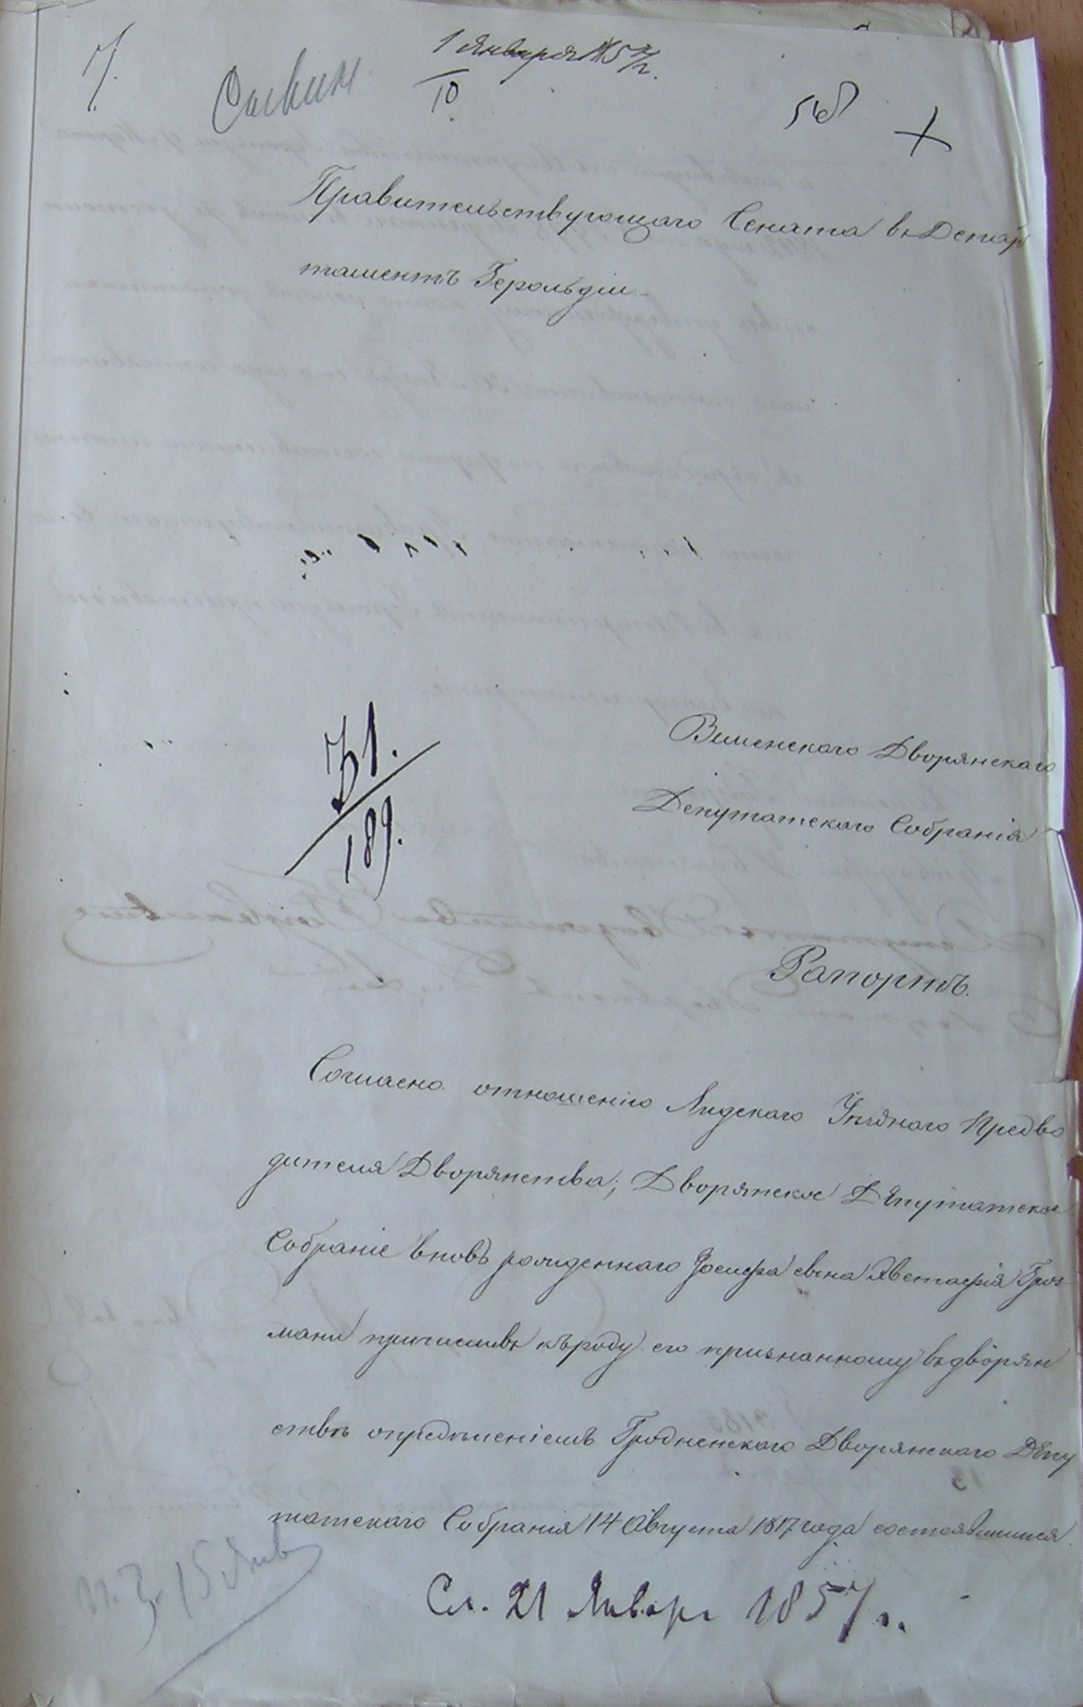 7.
1 Января 1857 г.
10
568
Правительствующаго Сената въ Депар
таментъ Герольдіи
31.
189.
Виленскаго Дворянскаго
Депутатскаго Собранія
Рапортъ.
Согласно отношенію Лидскаго Уѣзднаго Предво
дителя Дворянства, Дворянское Депутатское
Собраніе вновь рожденнаго Іосифа сына Августа
мани причисливъ къ роду его признанному въ дворян
ствѣ опредѣленіемъ Гродненскаго Дворянскаго Депу
татскаго Собранія 14 Августа 1817 года состоявшимся
15 Янв
Сл. 21 Января 1857 г.